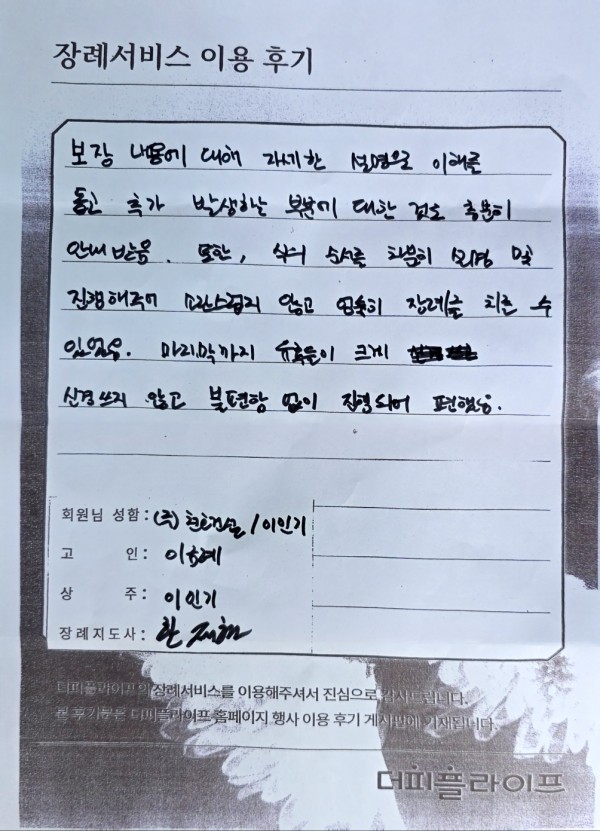 장례서비스 이용 후기
보장 내용에 대해 자세한 설명으로 이해를
돕고 추가 발생하는 부분에 대한 것도 충분히
안내 받음. 또한, 식의 순서를 차분히 설명 및
진행해주어 소란스럽지 않고 엄숙히 장례를 치를 수
있었음. 마지막까지 유족들이 크게
신경 쓰지 않고 불편함 없이 진행되어 편했음.
회원님 성함 : (주) /이인기
고 인 :
상 주 : 이인기
장례지도사 : 한
더피플라이프의 장례서비스를 이용해주셔서 진심으로 감사드립니다.
본 후기분은 더피플라이프 홈페이지 행사 이용 후기 게시판에 기재됩니다.
더피플라이프